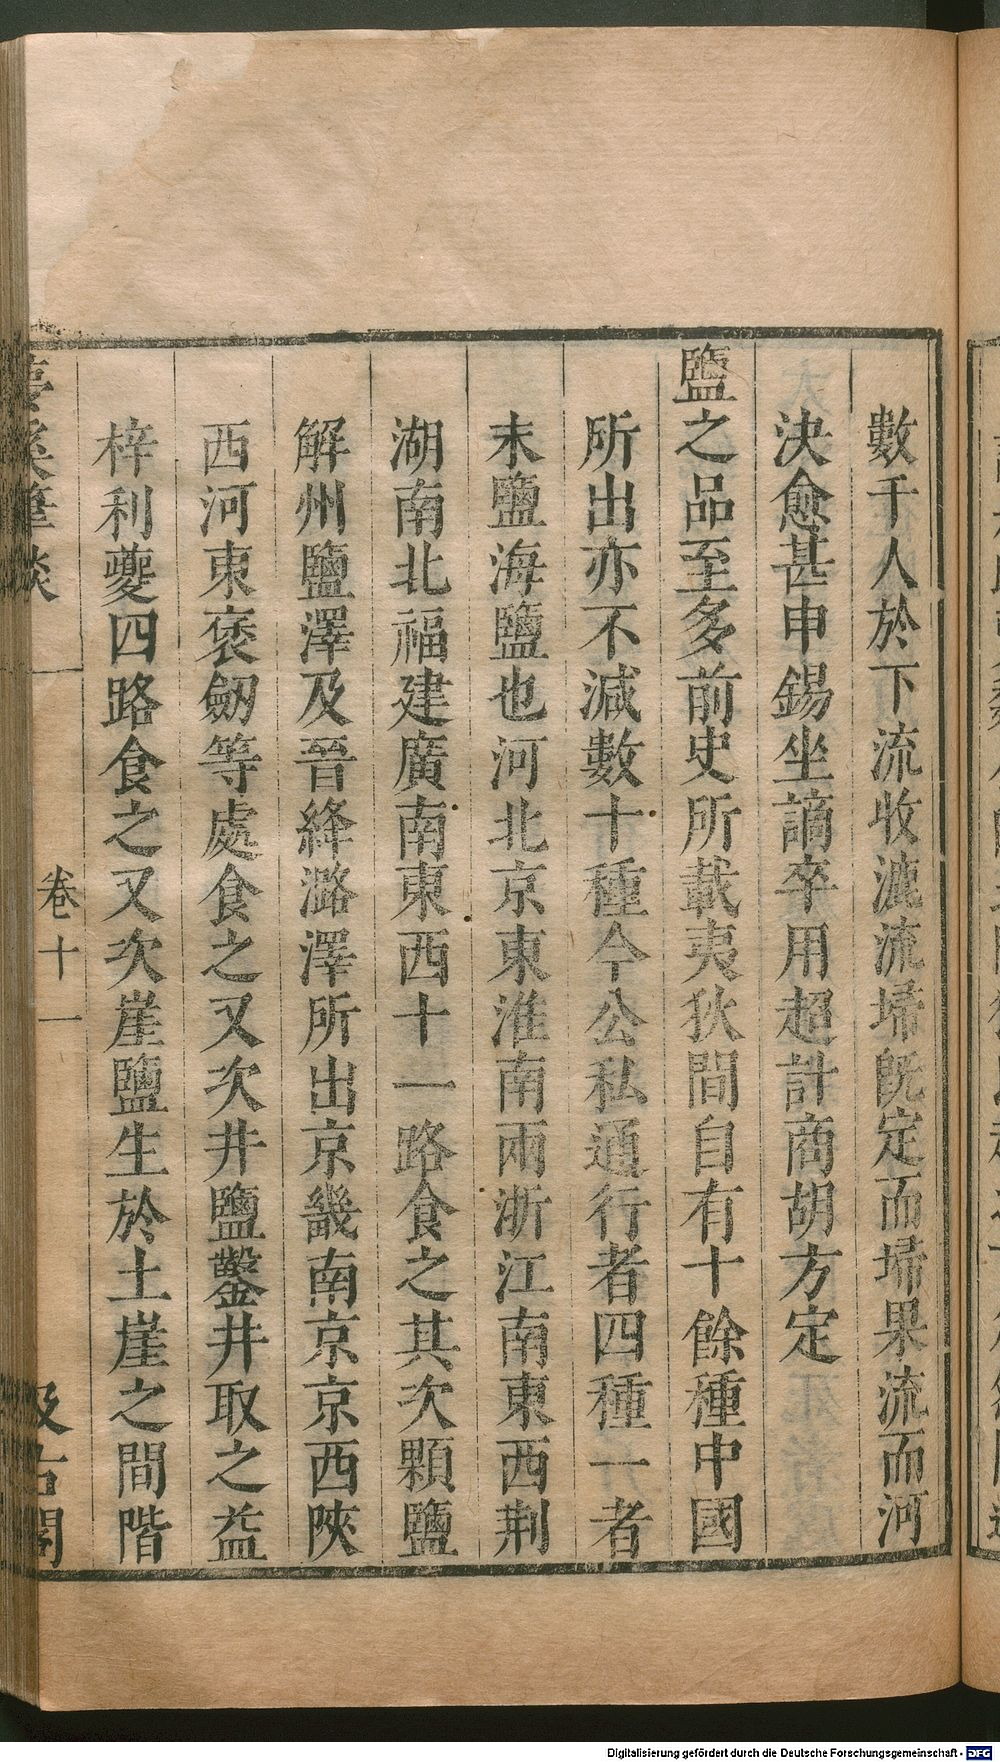 數千人於下流收漉流埽既定而埽果流而河
決愈甚申錫坐謫卒用超計商胡方定
鹽之品至多前史所載夷狄間自有十餘種中國
所出亦不減數十種今公私通行者四種一者
末鹽海鹽也河北京東淮南兩浙江南東西荆
湖南北福建廣南東西十一路食之其次顆鹽
解州鹽澤及晉絳潞澤所出京畿南京京西陝
西河東褒劒等處食之又次井鹽鑿井取之益
梓利夔四路食之又次崖鹽生於土崖之間階
夢溪筆談
卷十一
汲古閣
Digitalisierung gefördert durch die Deutsche Forschungsgemeinschaft - DFG